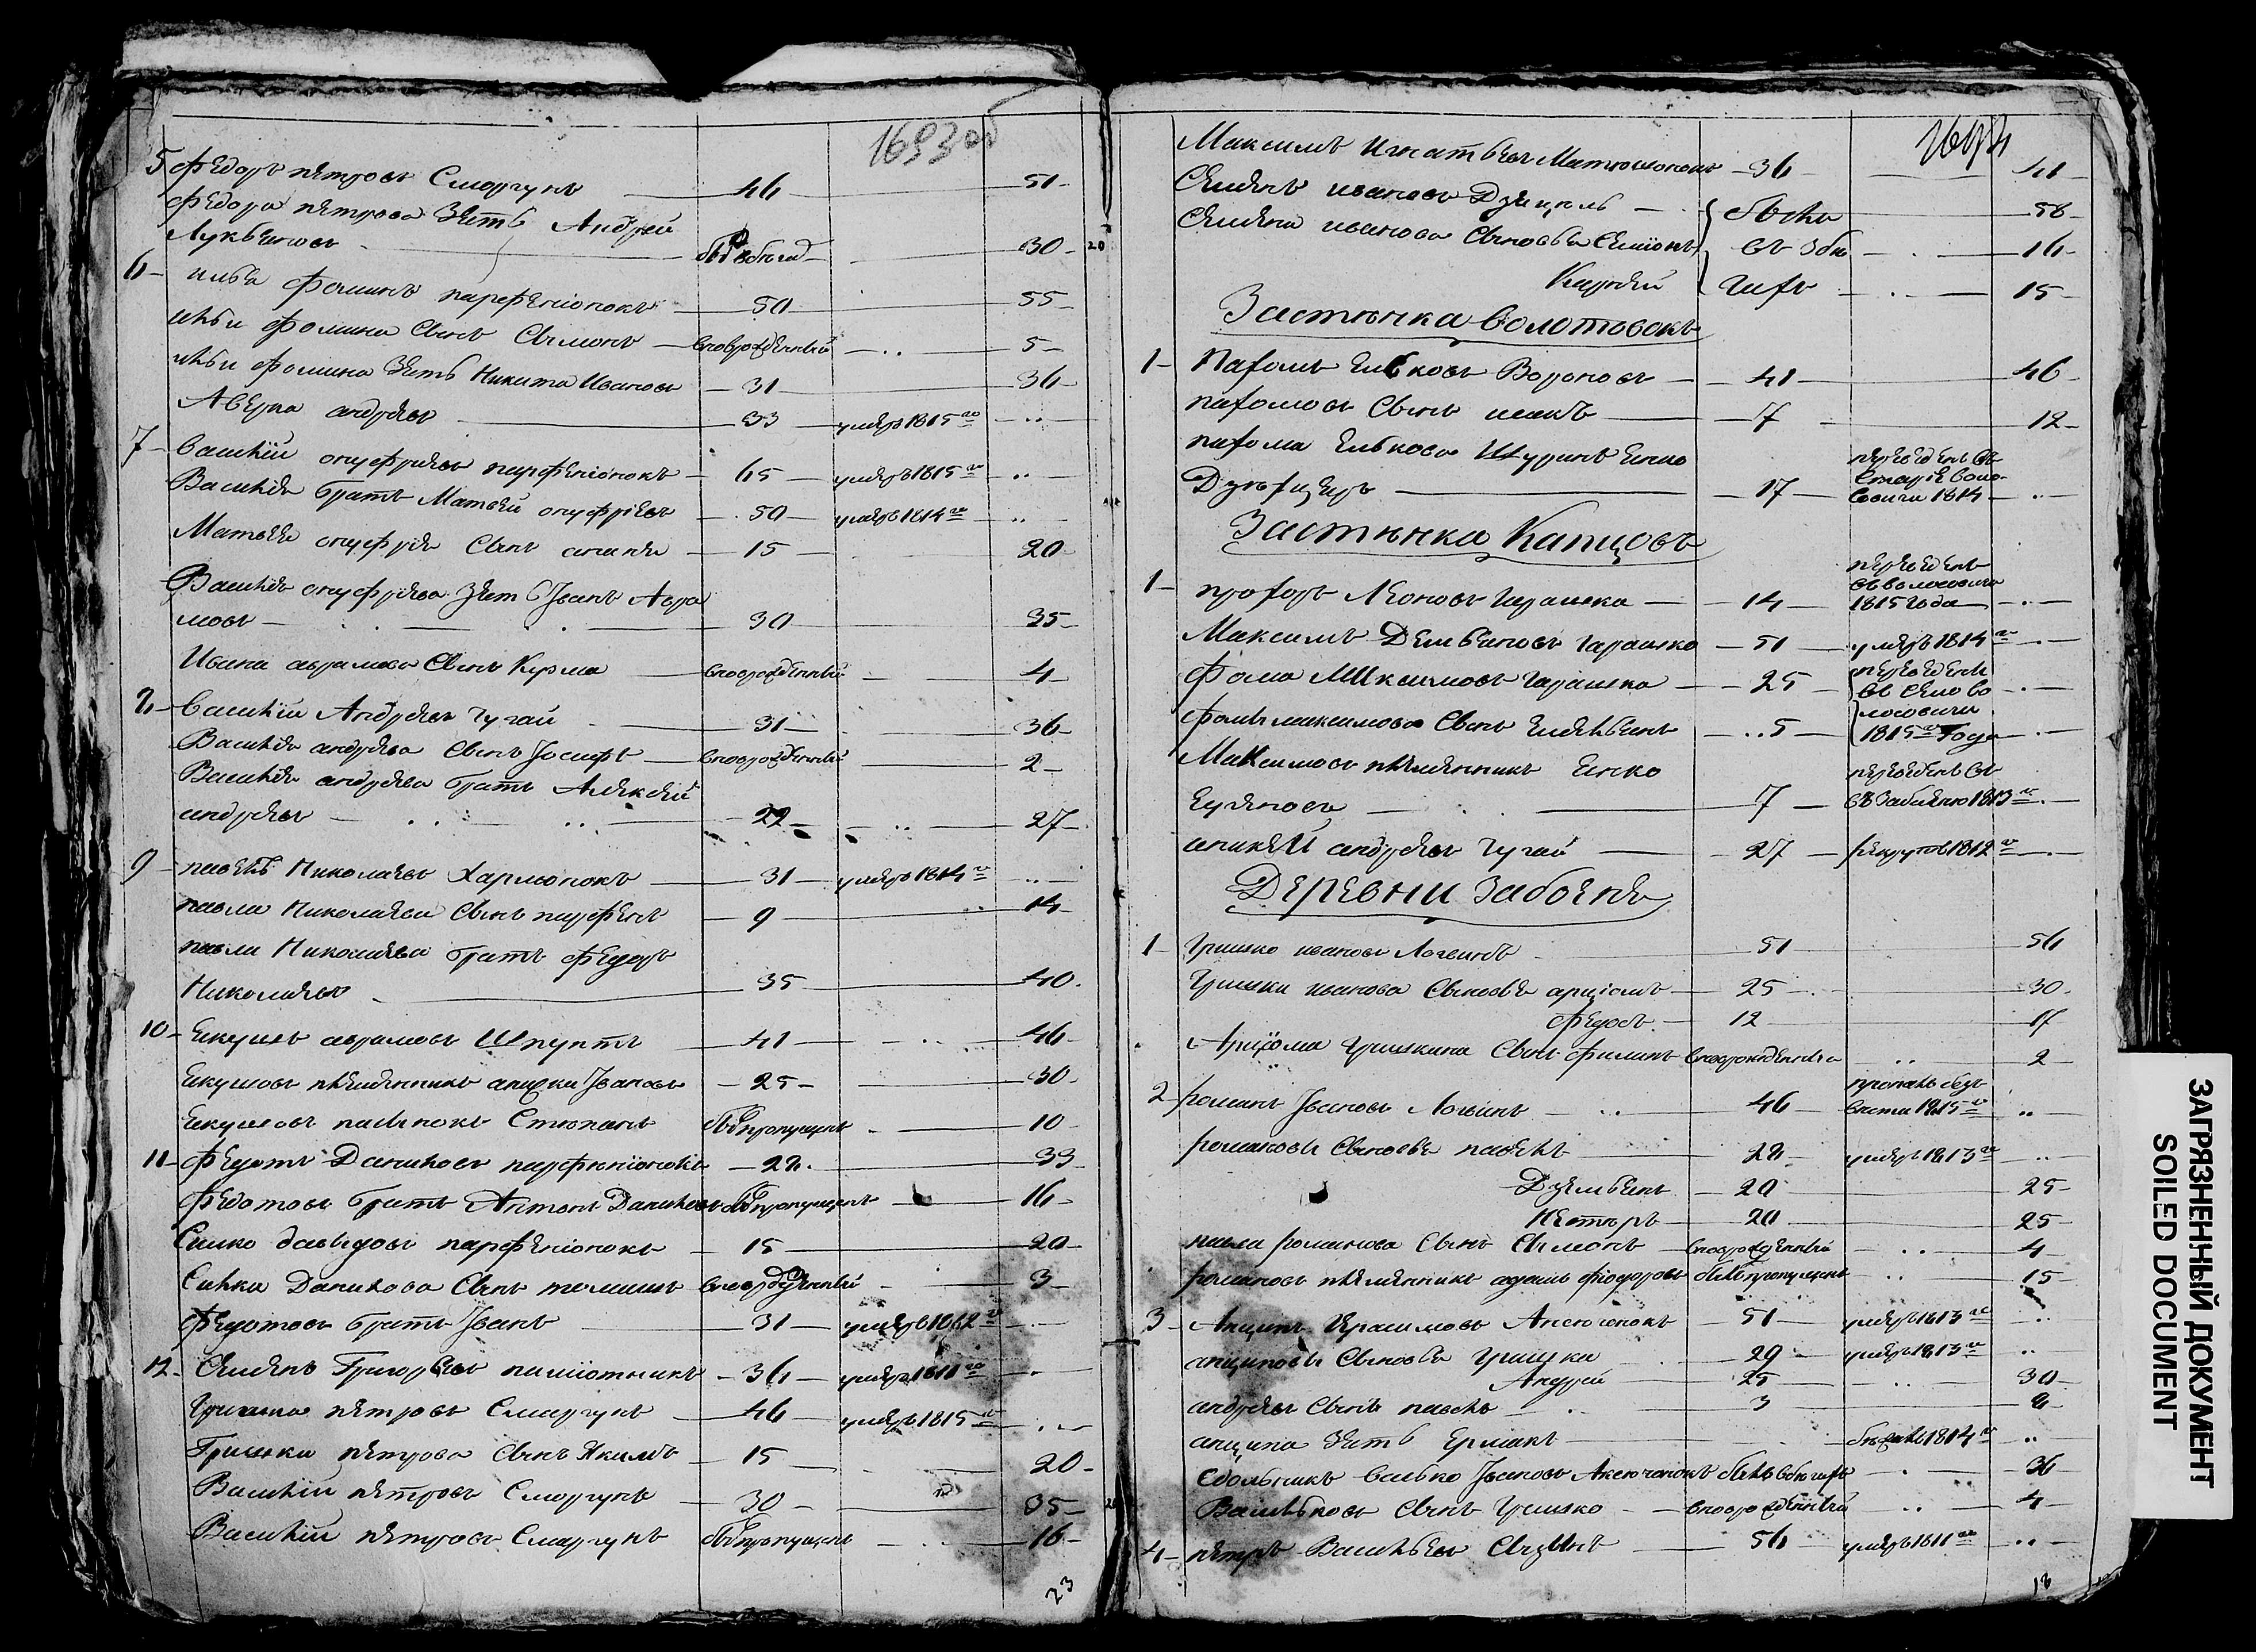 1693 об
5 Федоръ петровъ Сморгунъ — 46 — 51
Федора петрова Зять Андрей
Лукьяновъ — былъ в бегах — 30
6 илья Фоминъ парфенионокъ — 50 — 55
ильи Фомина Сынъ Сымонъ — вноврожденный — 5
ильи Фомина Зять Никита Ивановъ — 31 — 36
Аверка андреевъ — 33 — умеръ 1815го — ..
7 Василий онуфриевъ парфенионокъ — 65 — умеръ 1815го — ..
Василия братъ Матвей онуфриевъ — 50 — умеръ 1814го — ..
Матвея онуфрия Сынъ ананя — 15 — 20
Василия онуфриева Зять Iванъ Авра
мовъ — 30 — 35
Ивана аврамова Сынъ Курма — вноврожденный — 4
8 Василий Андреевъ Чугай — 31 — 36
Василия андреева Сынъ Iосифъ — вноврожденный — 2
Василия андреева братъ Алексей
андреевъ — 22 — 27
9 павелъ Николаевъ Харлионокъ — 31 — умеръ 1814го — ..
павла Николаева Сынъ парфенъ — 9 — 14
павла Николаева братъ Федоръ
Николаевъ — 35 — 40
10 Екушъ аврамовъ Шпунтъ — 41 — 46
Екушовъ племянникъ Iвановъ — 25 — 30
Екушовъ пасынокъ Степанъ — былъ пропущенъ — 10
11 Федотъ Даниловъ парфенионокъ — 28 — 33
Федотовъ братъ Антонъ Даниловъ былъ пропущенъ — 16
Силко давыдовъ парфенионокъ — 15 — 20
Силка Данилова Сынъ томашъ вноврожденный — 3
Федотовъ братъ Iванъ — 31 — умеръ 1812го
12 Семенъ Григорьевъ — 36 — умеръ 1811го
Гришка петровъ Сморгунъ — 46 — умеръ 1815го
Гришки петрова Сынъ Якимъ — 15 — 20
Василий петровъ Сморгунъ — 30 — 35
Василий петровъ Сморгунъ былъ пропущенъ — 16
23
1694
Максимъ Игнатьевъ Матюшонокъ — 36 — 41
Семенъ ивановъ Дзяцель — былъ — 58
Семена иванова Сыновья Симонъ — въ збе — 16
Карней — гахъ — 15
Застенка Болотовокъ
1 Пахомъ Ельковъ Вороновъ — 41 — 46
пахомовъ Сынъ исакъ — 7 — 12
пахома Елькова Шуринъ Енко
— 17 — переведенъ въ Старые воло совичи 1814 — ..
Застенка Капцовъ
1 прохоръ Леоновъ Гарашка — 14 — переведенъ въ волосовичи 1815 года — ..
Максимъ Демьяновъ гарашка — 51 — умеръ 1814го — ..
Фома Максимовъ гарашка — 25 — переведены въ село во
Фомы максимова Сынъ Емельянъ — 5 — лосовичи 1815го Года
Максимовъ племянникъ Енко
— 7 — переведенъ въ Забаеню 1813го
аникей андреевъ Чугай — 27 — рекрутъ 1812го
Деревни Забоенье
1 Гришко ивановъ Логвинъ — 51 — 56
Гришки иванова Сыновья арциомъ — 25 — 30
Федосъ — 12 — 17
Арциома гришкина Сынъ филипъ вноврожденный — 2
2 романъ Iвановъ Логвинъ — 46 — пропалъ безъ вести 1815го — ..
романовы Сыновья павелъ — 28 — умеръ 1813го — ..
Дземьянъ — 20 — 25
Петръ — 20 — 25
павла романова Сынъ Сымонъ — вноврожденный — 4
романовъ племянникъ адамъ фёдоровъ былъ пропущенъ — 15
3 Анципъ Герасимовъ Аксючонокъ — 51 — умеръ 1813го — ..
анциповы Сыновья гришка — 29 — умеръ 1813го — ..
Андрей — 25 — 30
андреевъ Сынъ павелъ — 3 — 8
анципа Зять Ермакъ — бежалъ 1814го — ..
Сдольникъ Васько Iвановъ Аксючонокъ былъ в бегахъ — 36
Васильковъ Сынъ Гришко — вноврожденный — 4
4 петръ Васильевъ — 56 — умеръ 1811го — ..
18
ЗАГРЯЗНЕННЫЙ ДОКУМЕНТ
SOILED DOCUMENT